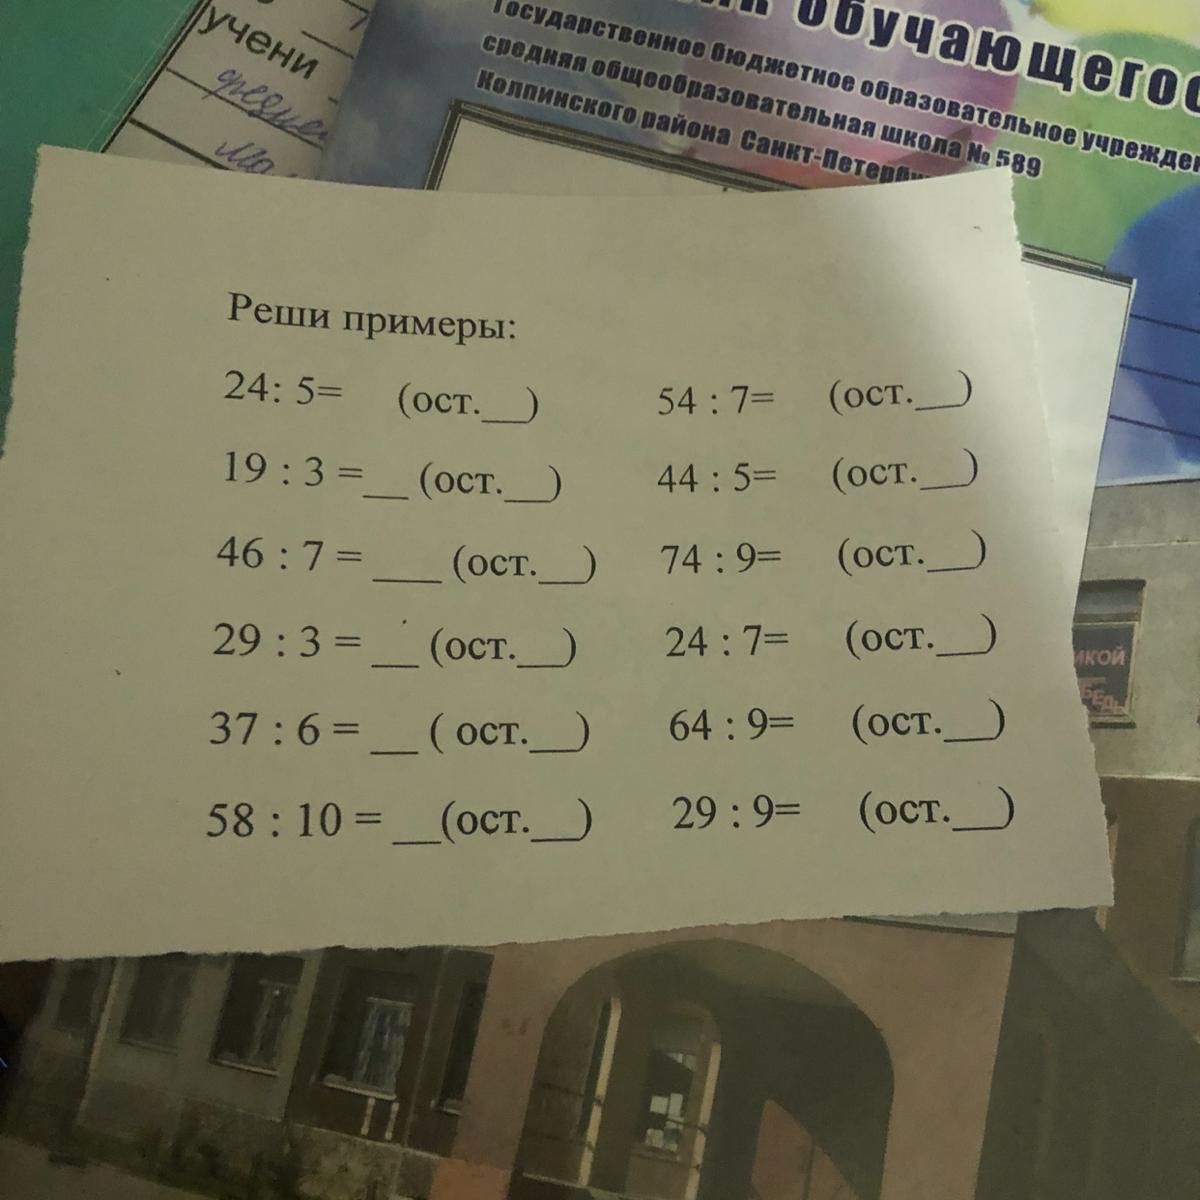 учени
обучающегос
Государственное бюджетное образовательное учрежден
средняя общеобразовательная школа № 589
Колпинского района Санкт-Петербу
Реши примеры:
24: 5= (ост.__) 54 : 7= (ост.__)
19 : 3 =__ (ост.__) 44 : 5= (ост.__)
46 : 7 = ___ (ост.__) 74 : 9= (ост.__)
29 : 3 = __ (ост.__) 24 : 7= (ост.__)
37 : 6 = __ ( ост.__) 64 : 9= (ост.__)
58 : 10 = __(ост.__) 29 : 9= (ост.__)
икой
беды